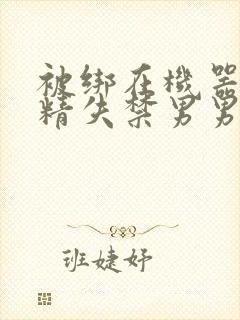 被绑在機器
精失禁男男
班婕妤